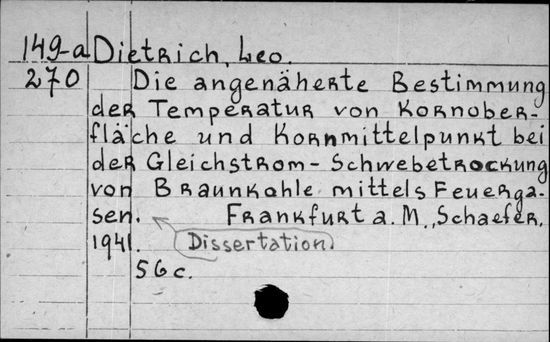 149-a Dietrich, Leo.
270 Die angenäherte Bestimmung
der Temperatur von Kornober-
fläche und Kornmittelpunkt bei
der Gleichstrom-Schwebetrockung
von Braunkohle mittels Feuerga-
sen. Frankfurt a. M., Schaefer,
1941. Dissertation.
56 c.